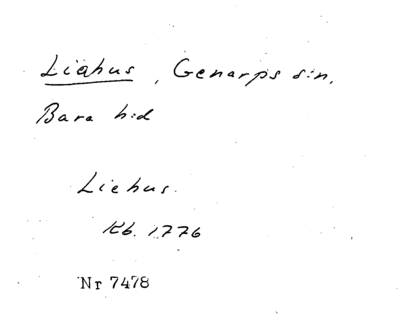 Liahus, Genarps s:n,
Bara h:d
Liehus.
Kb. 1776
Nr 7478